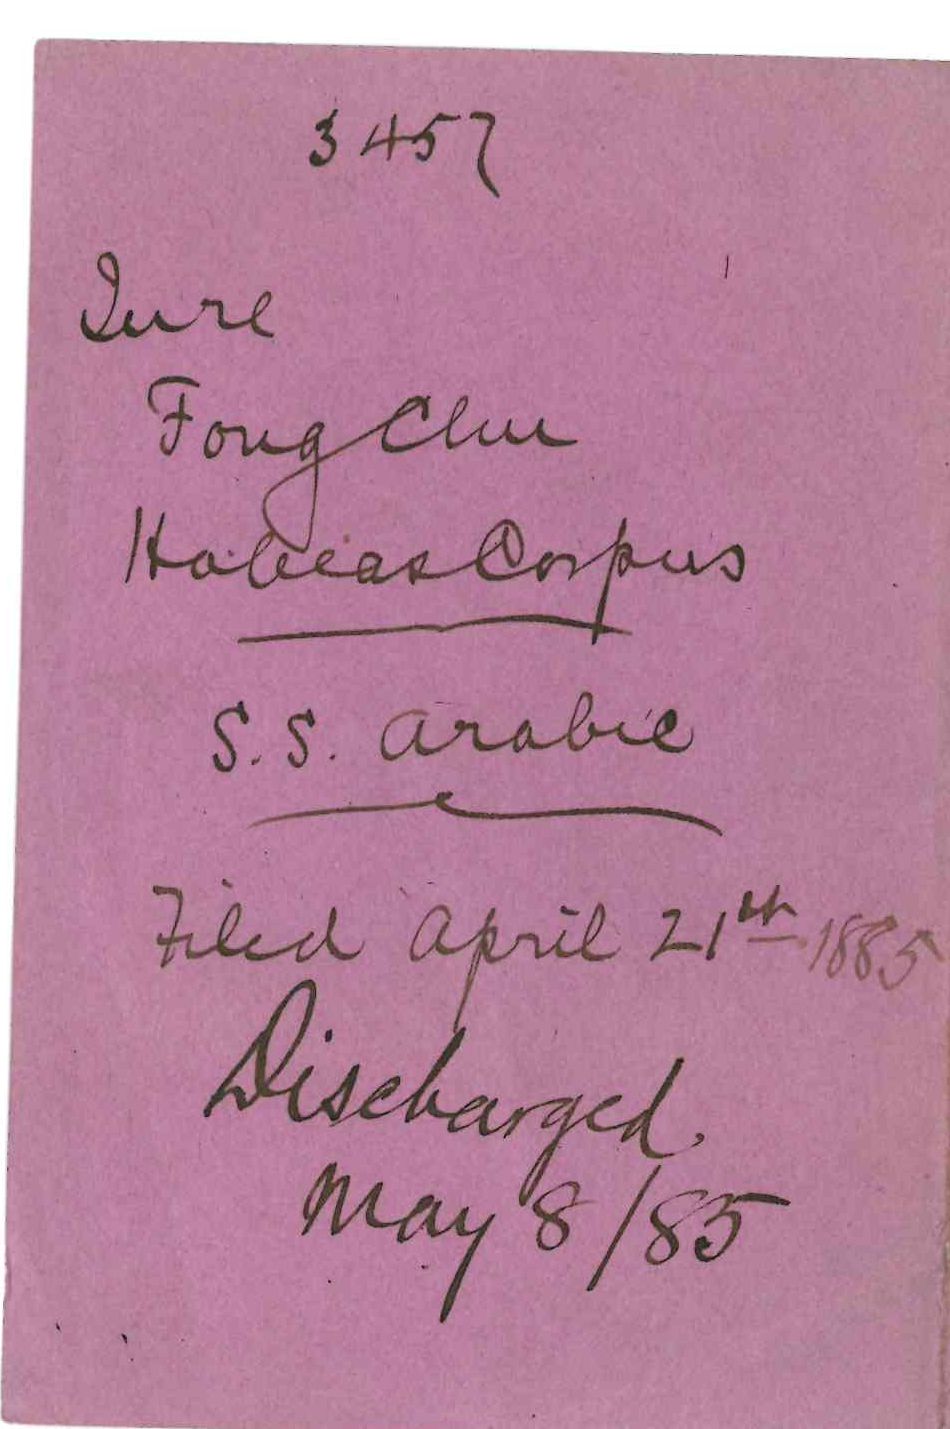 3457
In re
Fong Chu
Habeas Corpus
S.S. Arabic
Filed April 21th 1885
Discharged.
May 8/85